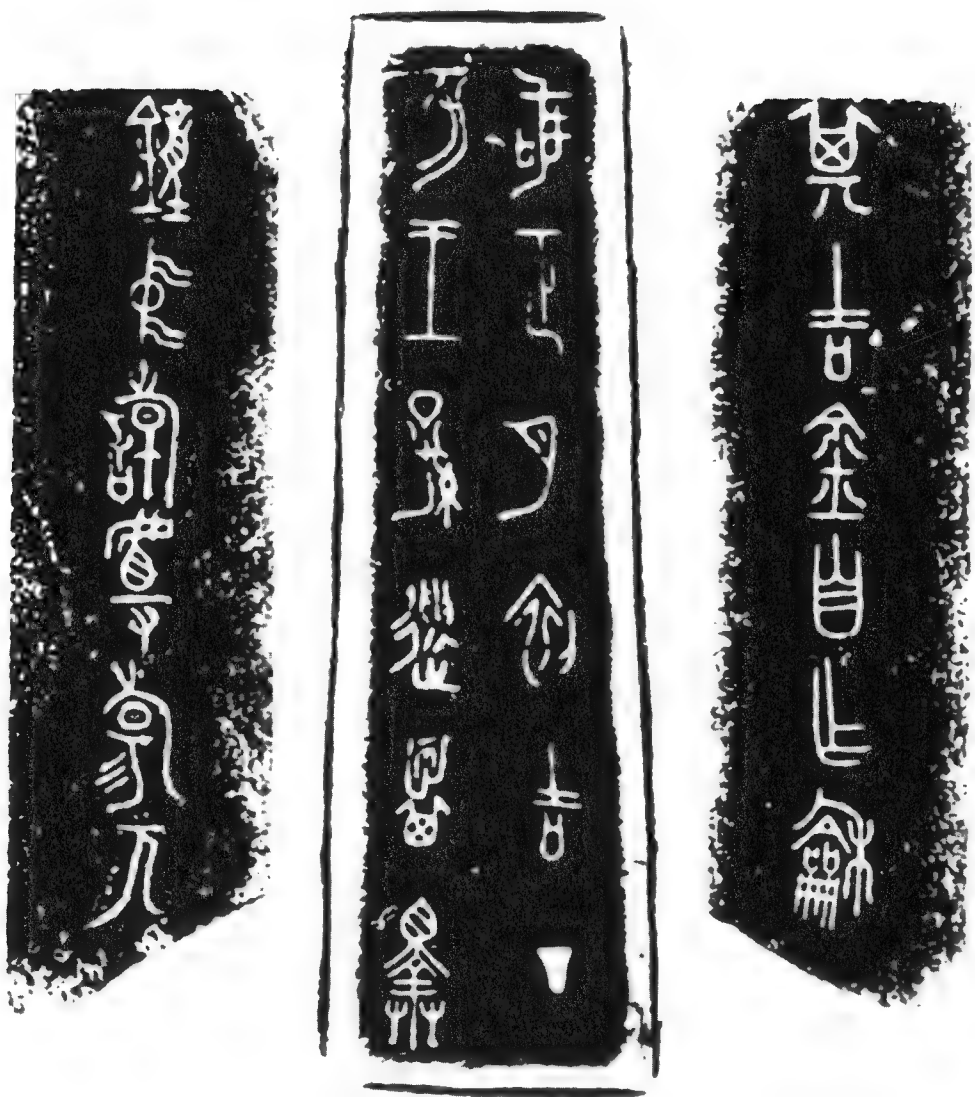 隹正月初吉丁
亥王孫遺者擇
其吉金自乍龢
鐘中𩙿𠭯昜元